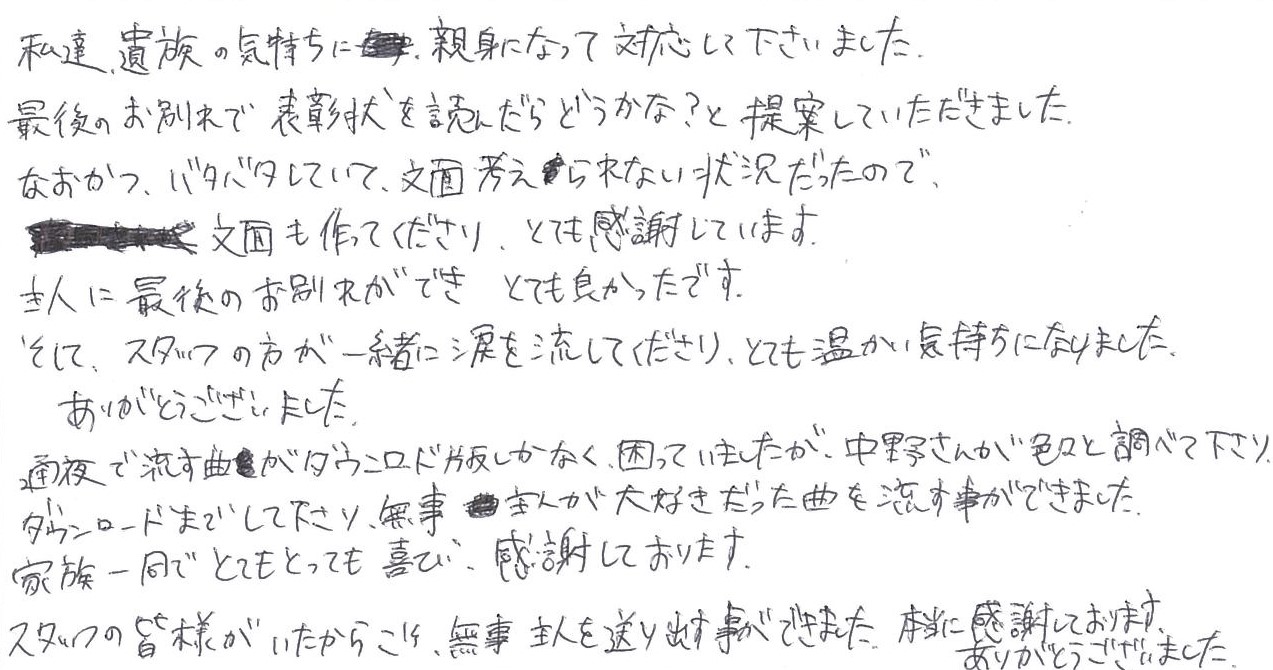 私達、遺族の気持ちに、親身になって対応して下さいました。
最後のお別れで表彰状を読んだらどうかな?と提案していただきました。
なおかつ、バタバタしていて、文面考えられない状況だったので、
文面も作ってくださり、とても感謝しています。
主人に最後のお別れができ とても良かったです。
そして、スタッフの方が一緒に涙を流してくださり、とても温かい気持ちになりました。
ありがとうございました。
通夜で流す曲がダウンロード版しかなく、困っていましたが、中野さんが色々と調べて下さり、
ダウンロードまでして下さり、無事主人が大好きだった曲を流す事ができました。
家族一同でとてもとっても喜び、感謝しております。
スタッフの皆様がいたからこそ、無事主人を送り出す事ができました。本当に感謝しております。
ありがとうございました。